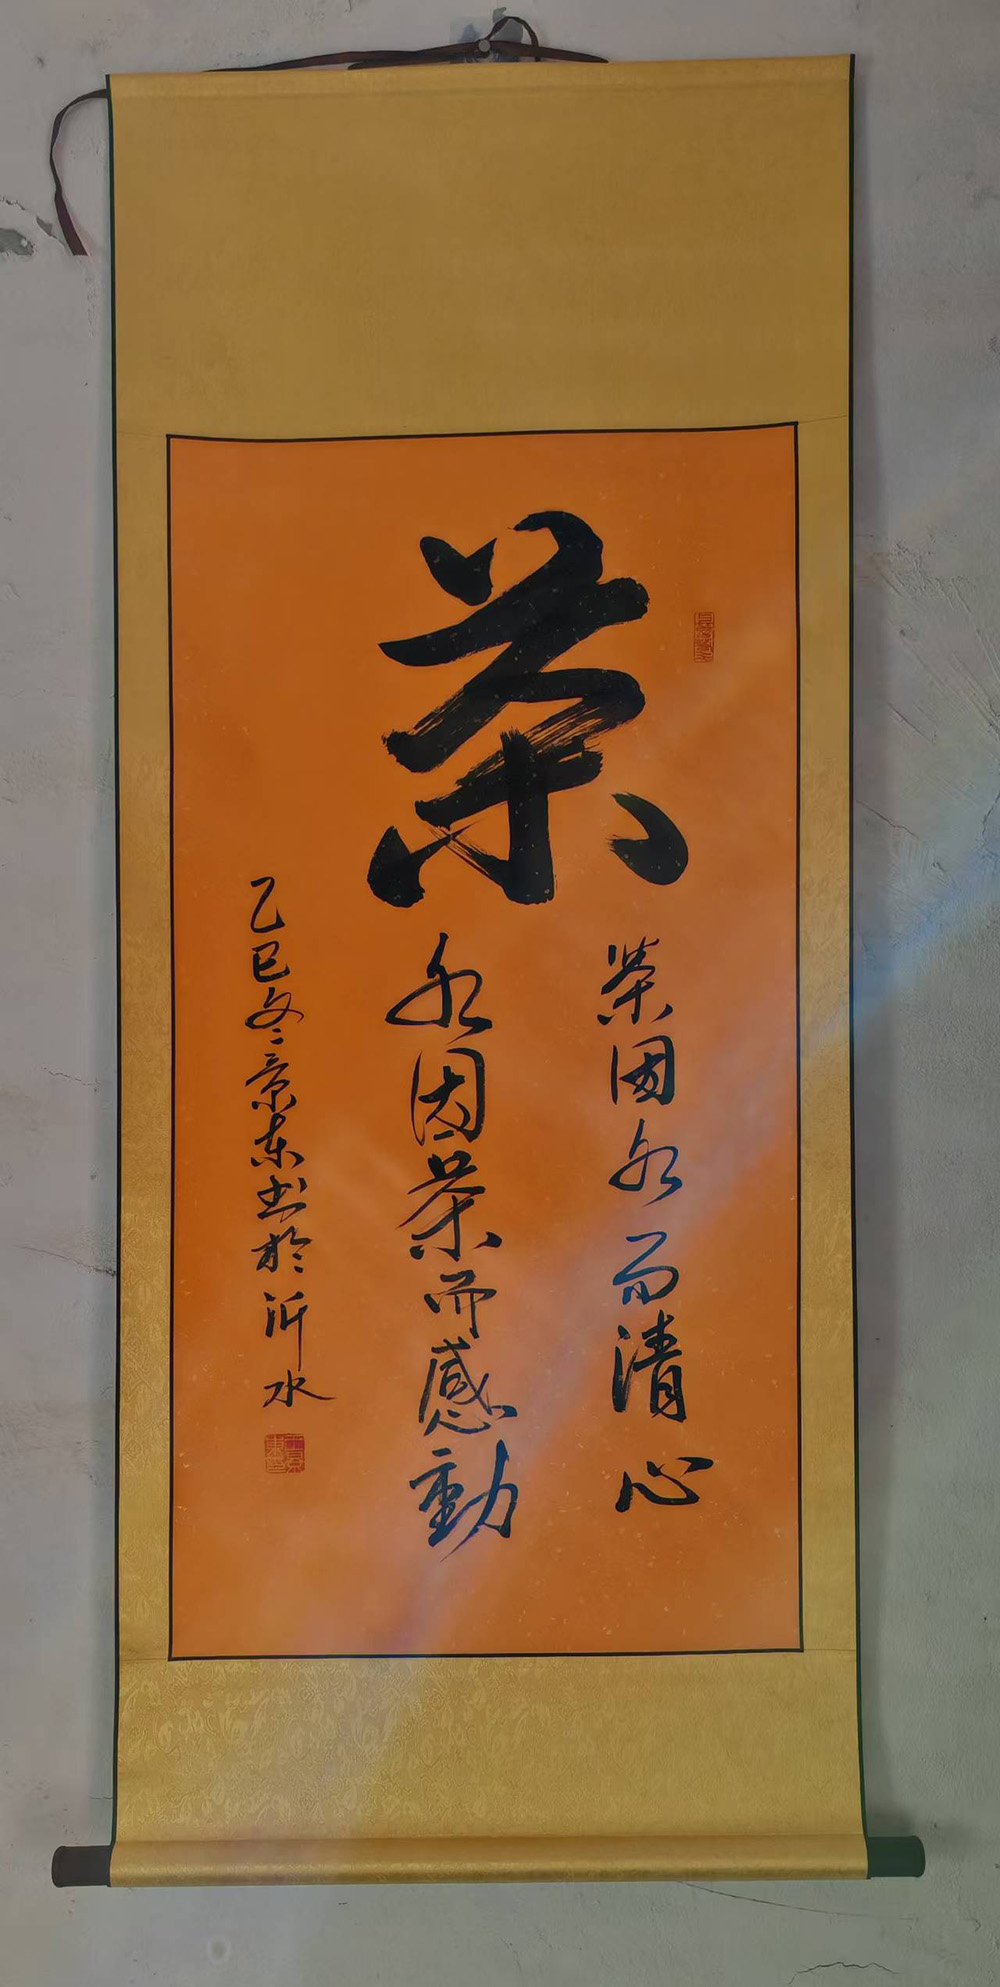 茶
茶因水而清心
水因茶而感動
乙巳冬景东书於沂水